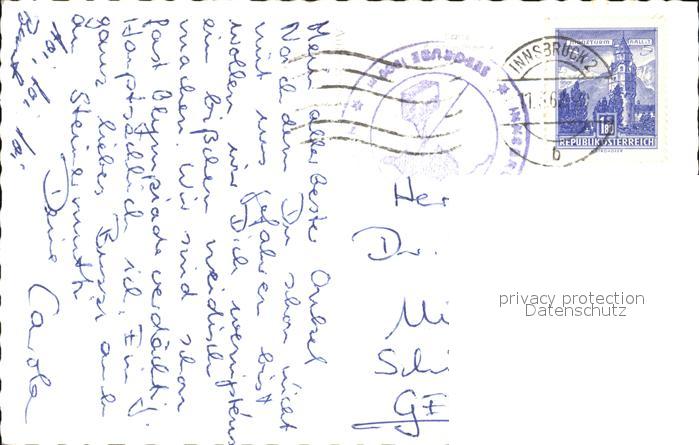 Mein aller bester Onkel
Nach dem Du schon nicht
mit uns gefahren bist
wollen wir Dich wenigstens
ein bißchen neidisch
machen. Wir sind schon
fast Olympiade verdächtig
Hauptsächlich ich. Ein
ganz liebes Bussi auch
an Steinermutti
Deine Carola
INNSBRUCK 2
11.
b
MÜNZERTURM HALL i. T.
1.80
REPUBLIK ÖSTERREICH
Her
Dr.
Mi
Sch
GE
privacy protection
Datenschutz